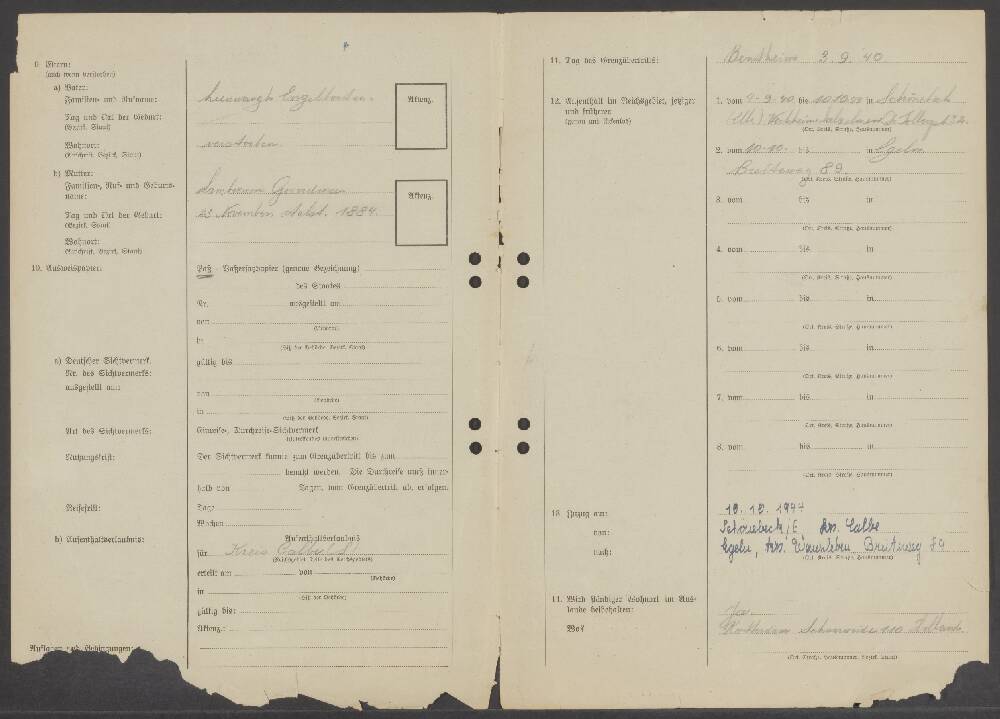 9. Eltern:
(auch wenn verstorben)
a) Vater:
Familien- und Rufname:
Engelbertus
Aktenz.
Tag und Ort der Geburt:
(Bezirk, Staat)
Wohnort:
verstorben
(Ortschaft, Bezirk, Staat)
b) Mutter:
Familien-, Ruf- und Geburts-
name:
Aktenz.
Tag und Ort der Geburt:
(Bezirk, Staat)
23 November 1884.
Wohnort:
(Ortschaft, Bezirk, Staat)
10. Ausweispapier:
Paß - Paßersatzpapier (genaue Bezeichnung)
des Staates
Nr. ausgestellt am
von
(Behörde)
in
(Sitz der Behörde, Bezirk, Staat)
a) Deutscher Sichtvermerk.
gültig bis
Nr. des Sichtvermerks:
ausgestellt von:
von
(Behörde)
in
(Sitz der Behörde, Bezirk, Staat)
Art des Sichtvermerks:
Einreise-, Durchreise-Sichtvermerk
(Zutreffendes unterstreichen)
Nutzungsfrist:
Der Sichtvermerk konnte zum Grenzübertritt bis zum
benutzt werden. Die Durchreise muß inner-
halb von Tagen, vom Grenzübertritt ab, erfolgen.
Reisefrist:
Tage
Wochen
b) Aufenthaltserlaubnis:
Aufenthaltserlaubnis
für Kreis Calbe (S)
(Reichsgebiet, Teile des Reichsgebiets)
erteilt am von
(Behörde)
in
(Sitz der Behörde)
gültig bis:
Aktenz.:
Auflagen und Bedingungen:
11. Tag des Grenzübertritts:
Bentheim 3.9.40
12. Aufenthalt im Reichsgebiet, jetziger
und früherer
(genau und lückenlos)
1. vom 4-9.40 bis 10.10.44 in Schönebeck
(Elbe)
(Ort, Kreis, Straße, Hausnummer)
2. vom 10.10. bis in Egeln
Breiteweg 89.
(Ort, Kreis, Straße, Hausnummer)
3. vom bis in
(Ort, Kreis, Straße, Hausnummer)
4. vom bis in
(Ort, Kreis, Straße, Hausnummer)
5. vom bis in
(Ort, Kreis, Straße, Hausnummer)
6. vom bis in
(Ort, Kreis, Straße, Hausnummer)
7. vom bis in
(Ort, Kreis, Straße, Hausnummer)
8. vom bis in
(Ort, Kreis, Straße, Hausnummer)
13. Zuzug am:
10.10.1944
von:
Schönebeck/E. Krs. Calbe
nach:
Egeln, Krs. Wanzleben Breiteweg 89
(Ort, Kreis, Straße, Hausnummer)
14. Wird ständiger Wohnort im Aus-
lande beibehalten:
Ja.
Wo?
Rotterdam 110 Holland
(Ort, Straße, Hausnummer, Bezirk, Staat)